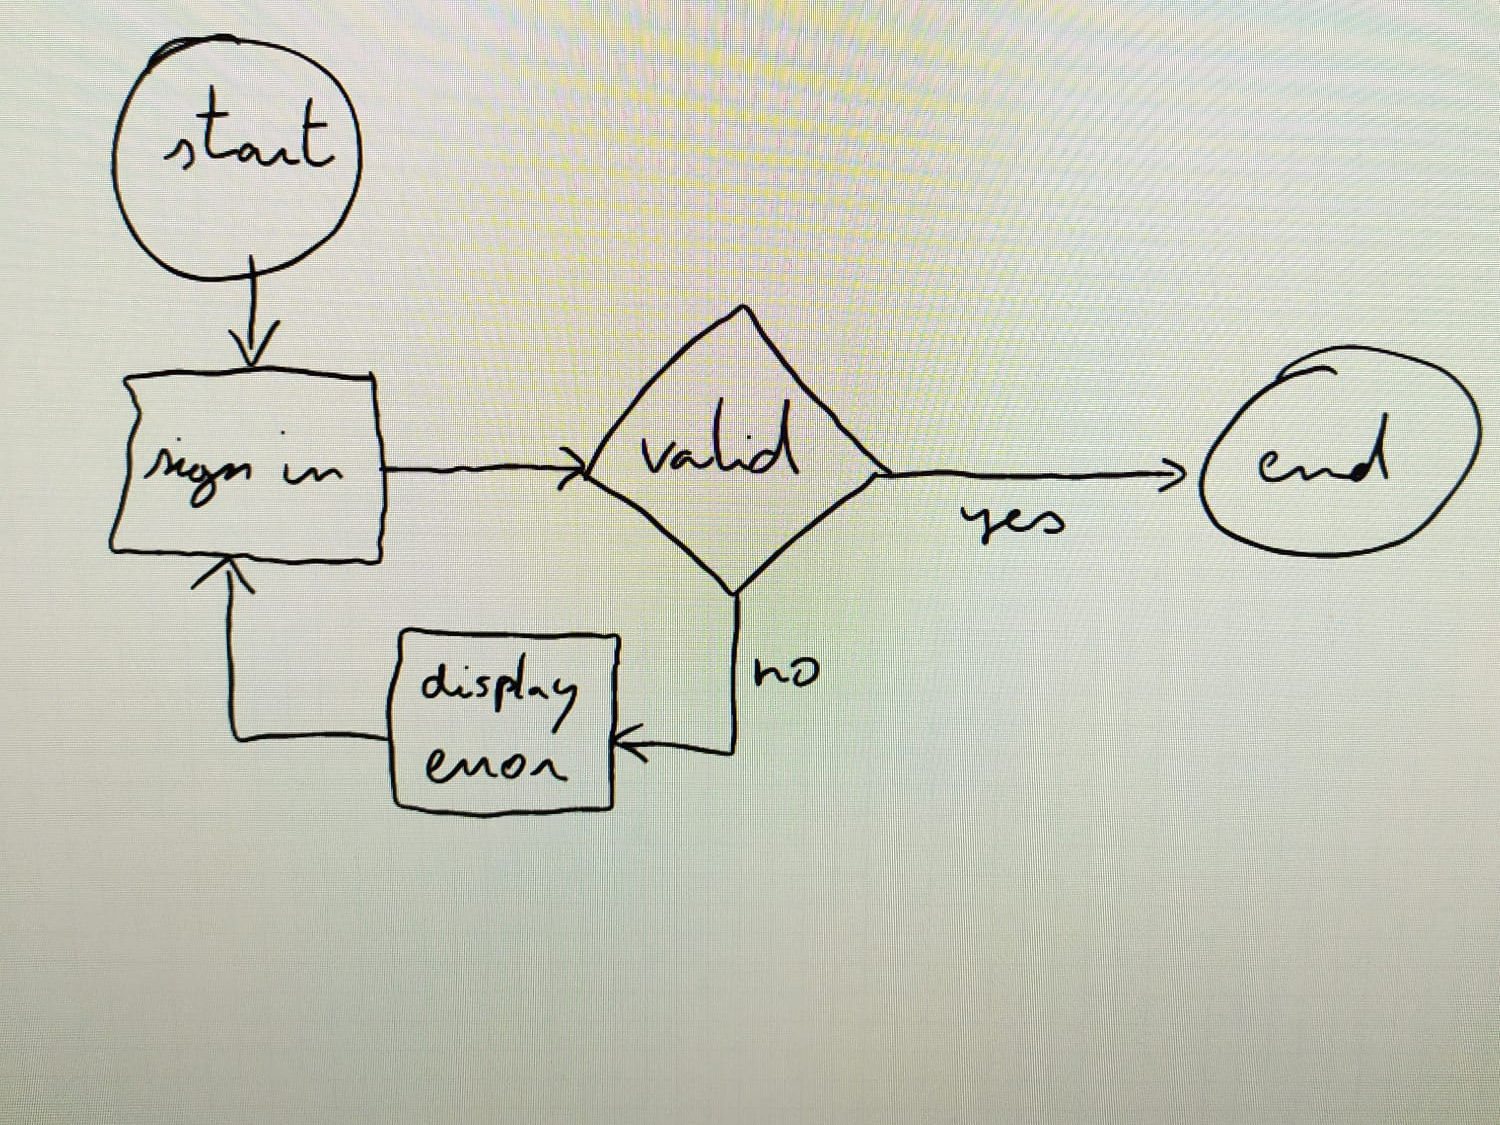 start
sign in
valid
yes
end
no
display
error